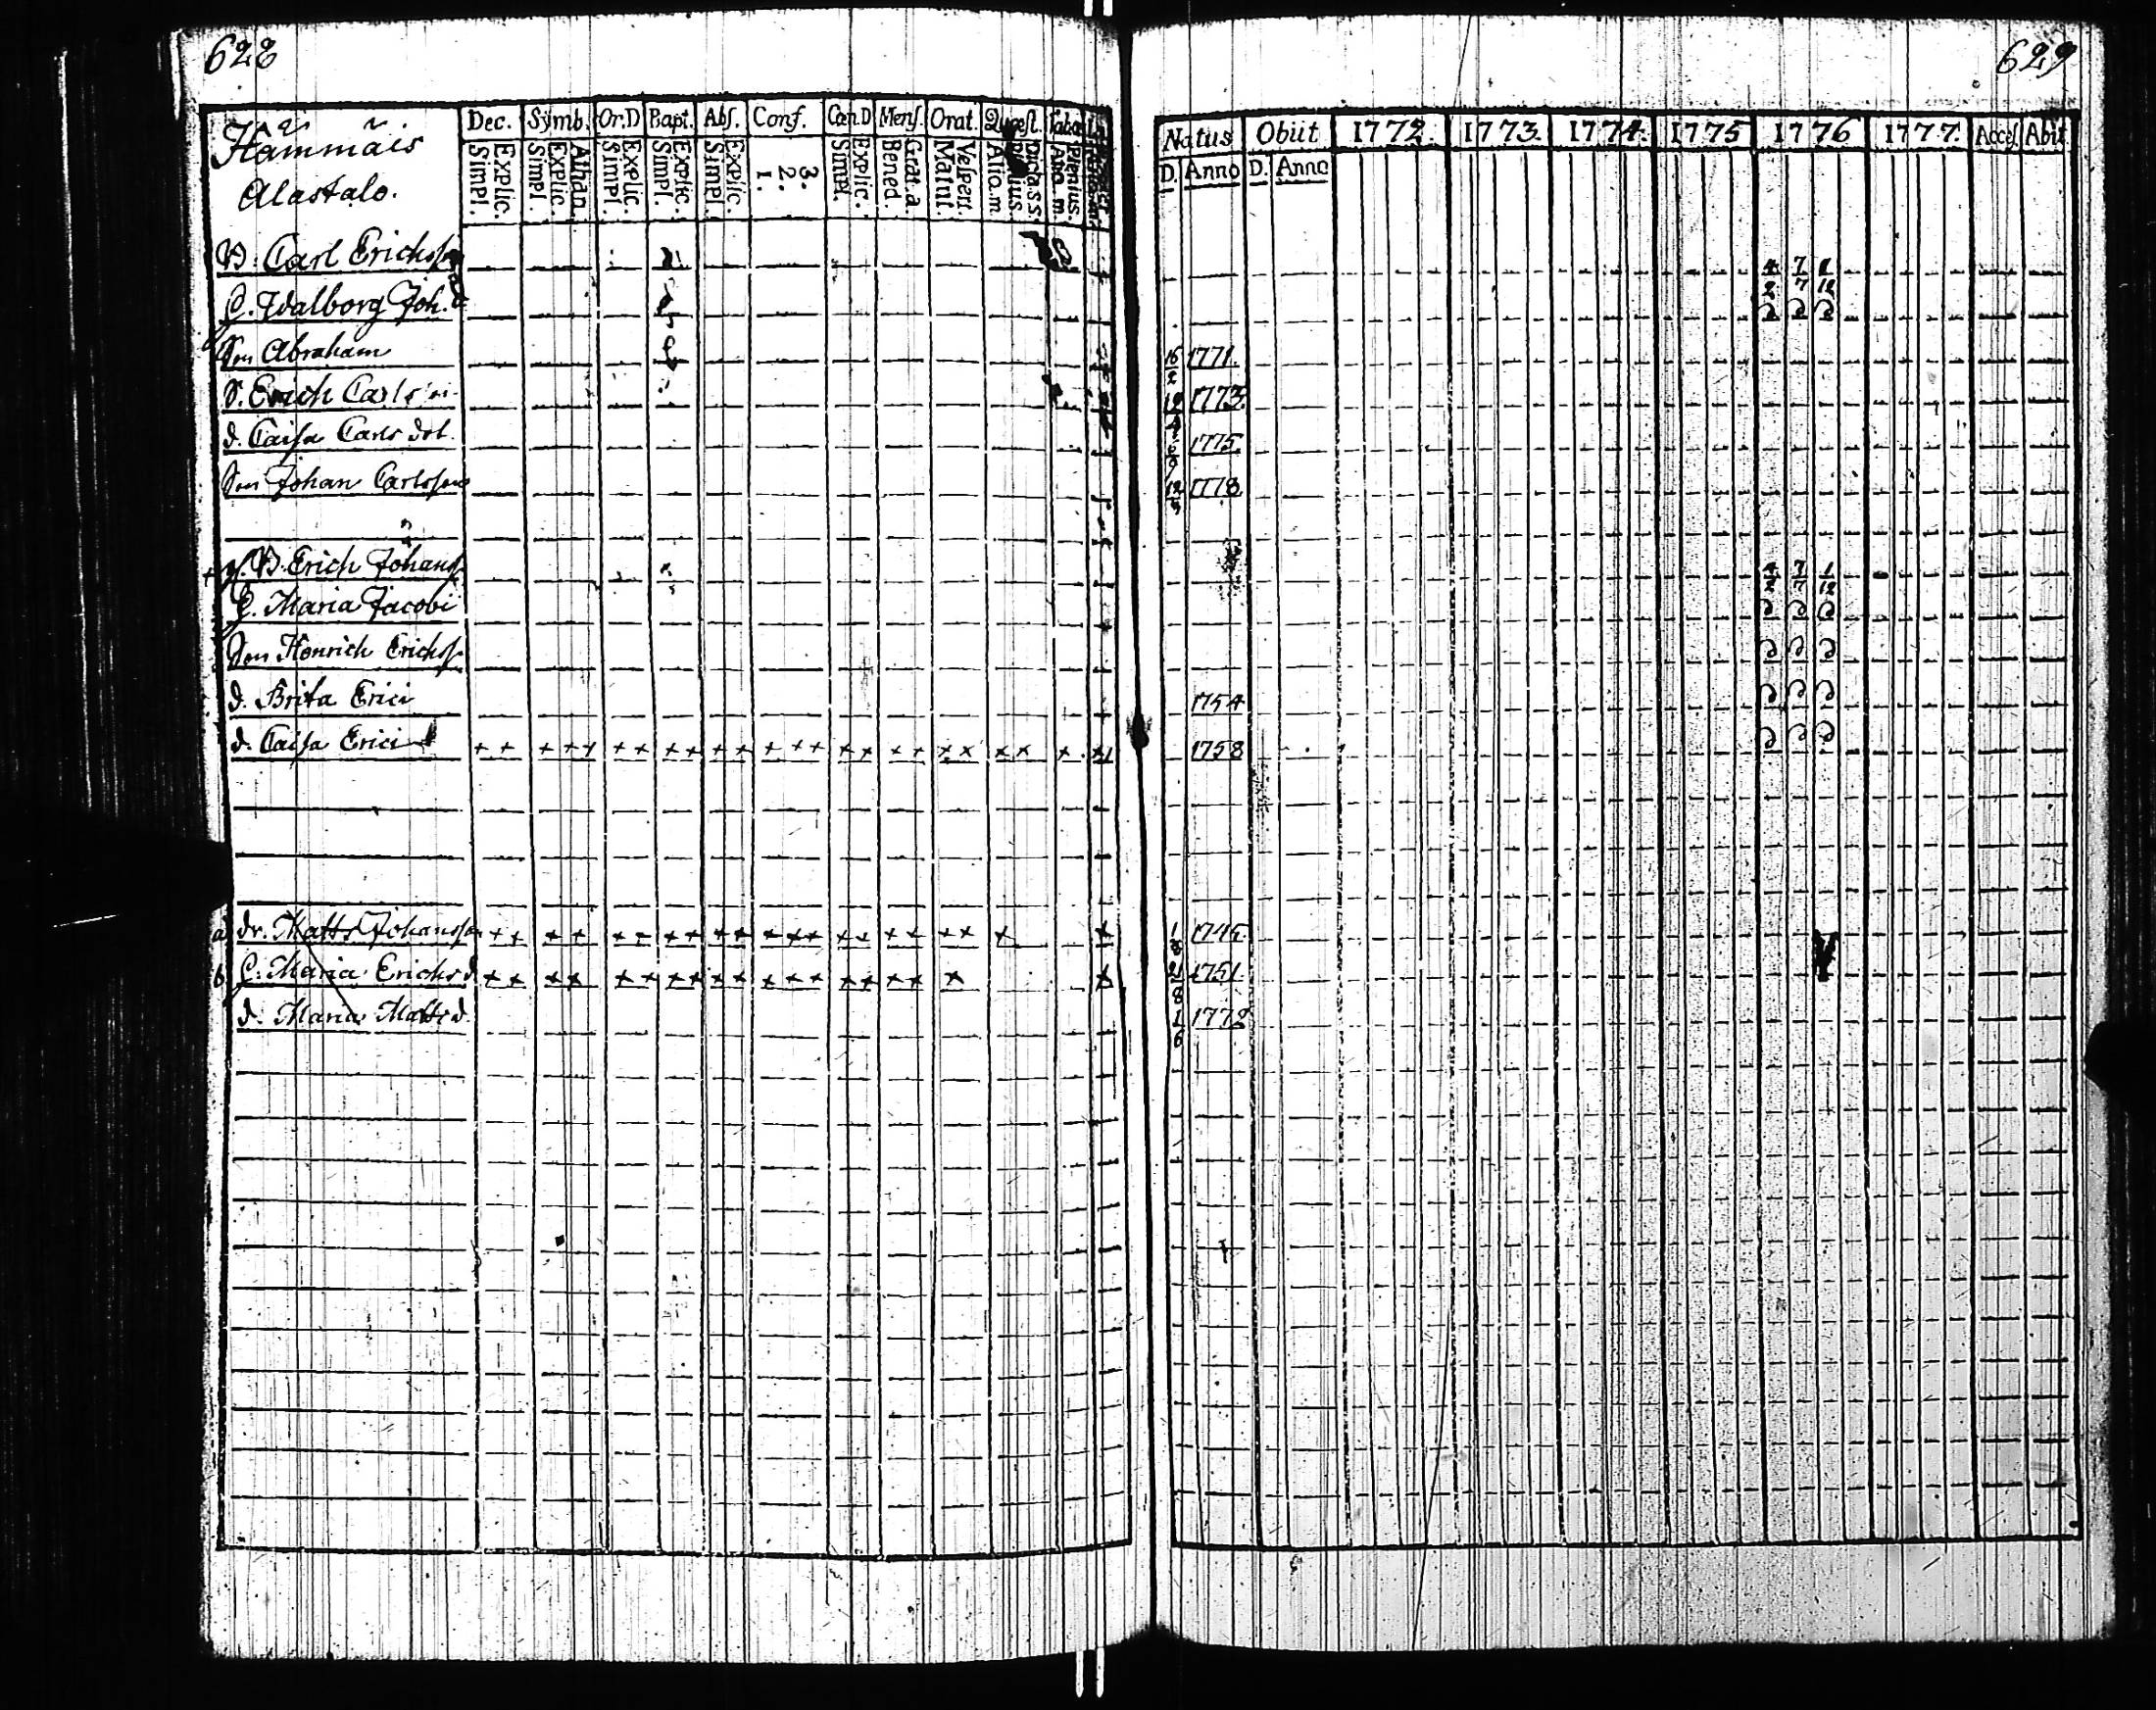 628
629
Hämmäis
Alastalo.
Dec. Symb. Or.D Bapt. Abſ. Conf. Cœn.D Menſ. Orat. Quæſt.
Simpl. Explic. Simpl. Explic. Athan. Simpl. Explic. Simpl. Explic. Simpl. Explic. 1. 2. 3. Simpl. Explic. Bened. Grat. a. Matut. Veſpert.
Natus Obiit 1772. 1773. 1774. 1775 1776 1777. Acceſ. Abiit
D. Anno D. Anno
B. Carl Erichsson 4 7 1
2 7 12
C. Walborg Joh. d
Son Abraham 16/2 1771.
S. Erich Carls 1773.
d. Caisa Carls dot. 1775.
Son Johan Carlsson 12/5 1778.
+ g. B. Erich Johanss. 4 7 1
2 7 12
C. Maria Jacobi
Son Henrich Erichss.
d. Brita Erici 1754
d. Caisa Erici + + + + + + + + + + + + + + + + + + + x x x x + x 1758
a dr. Matts Johansson + + + + + + + + + + + + + + + + + + + x x 1/8
b C. Maria Erichs d. x x x x x x x x x x x x x x x x x x x x 2/8 1751
d. Maria Matts d. 1/6 1772